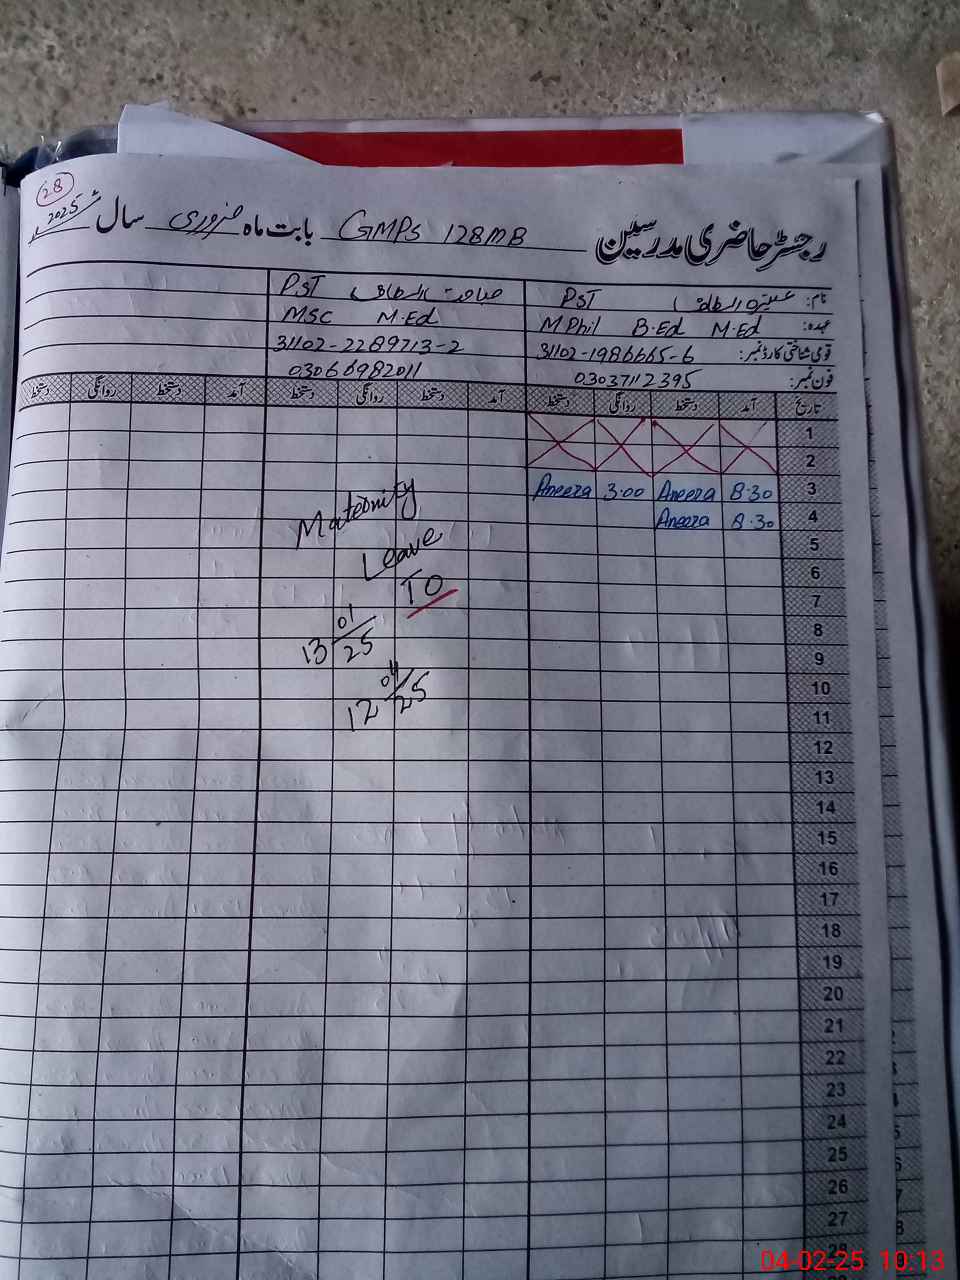 28
رجسٹر حاضری مدرسین GMPS 128MB بابت ماہ فروری سال 2025
نام: PST PST
عہدہ: M Phil B.Ed M.Ed MSC M.Ed
قومی شناختی کارڈ نمبر: 31102-1986665-6 31102-2289713-2
فون نمبر: 03037112395 03066982011
تاریخ آمد دستخط روانگی دستخط آمد دستخط روانگی دستخط آمد دستخط روانگی دستخط
1
2
3 8.30 Aneeza 3.00 Aneeza
4 8.30 Aneeza
5
6
7
8
9
10
11
12
13
14
15
16
17
18
19
20
21
22
23
24
25
26
27
28
Maternity
Leave
TO
13 01/25
12 04/25
04-02-25 10:13